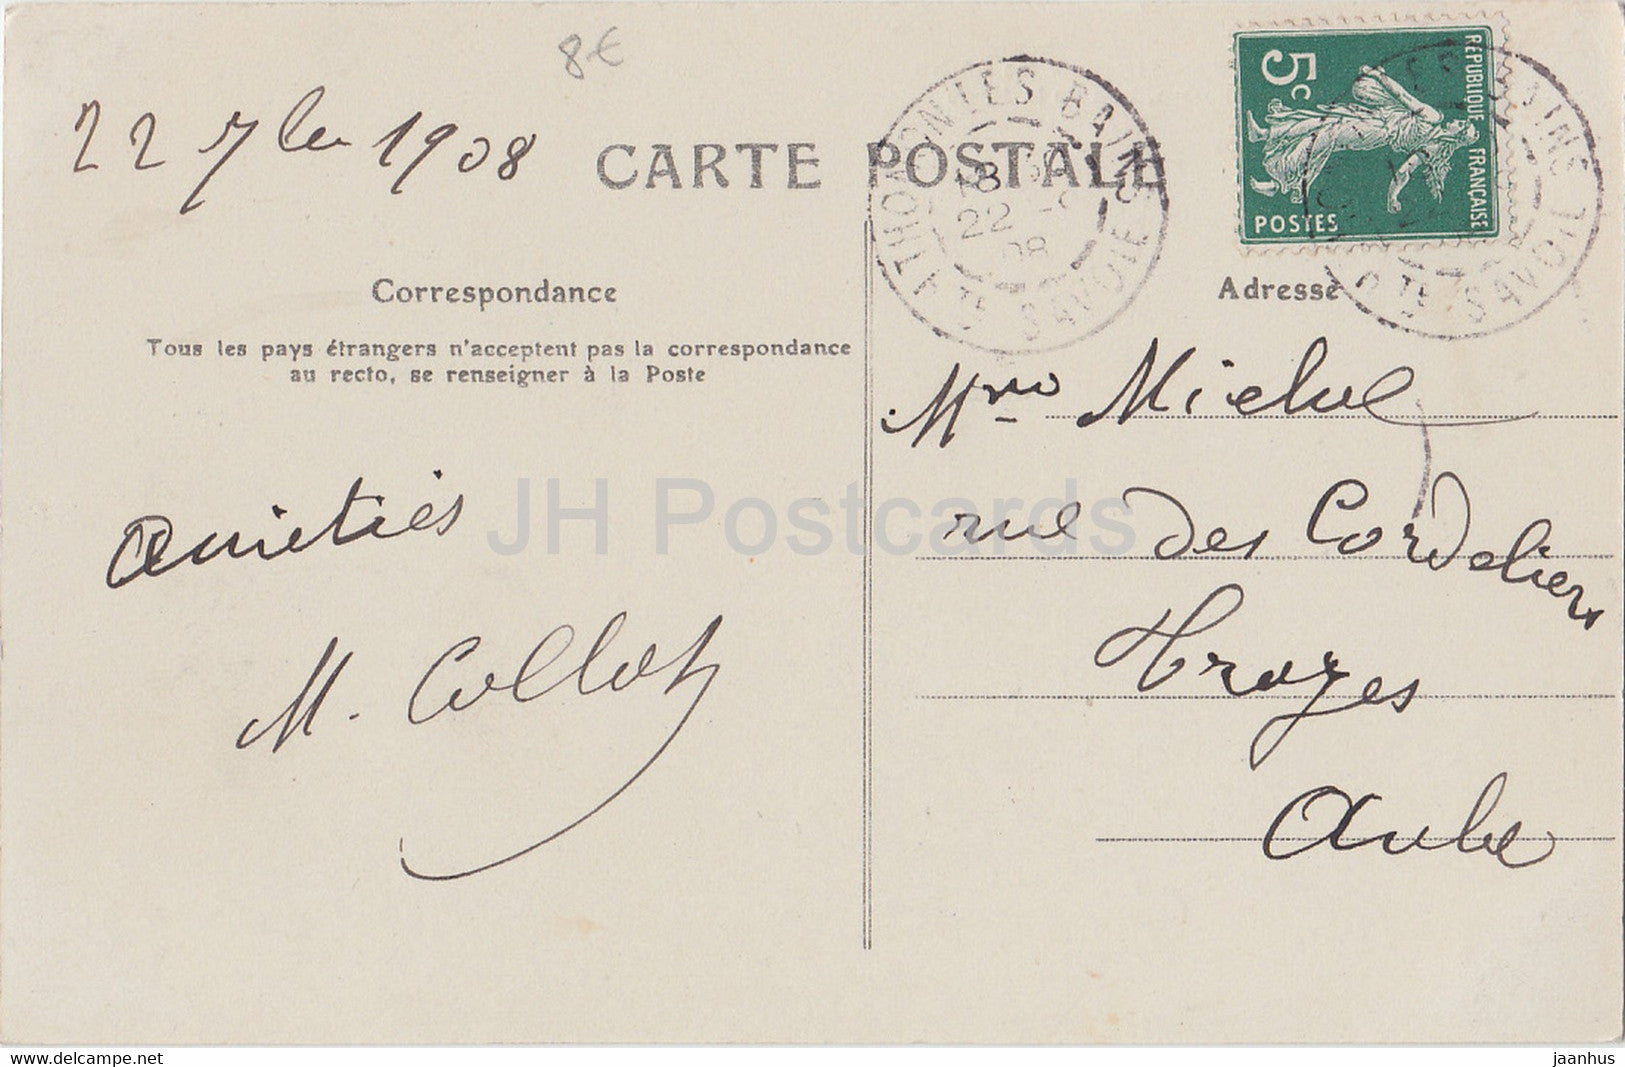 8€
22 7bre 1908
CARTE POSTALE
THONON LES BAINS
Hte SAVOIE
22
08
5c
RÉPUBLIQUE FRANÇAISE
POSTES
Correspondance
Tous les pays étrangers n'acceptent pas la correspondance
au recto, se renseigner à la Poste
Amitiés
M. Collot
Adresse
Mme Michel
rue des Cordeliers
Troyes
Aube
JH Postcards
www.delcampe.net
jaanhus